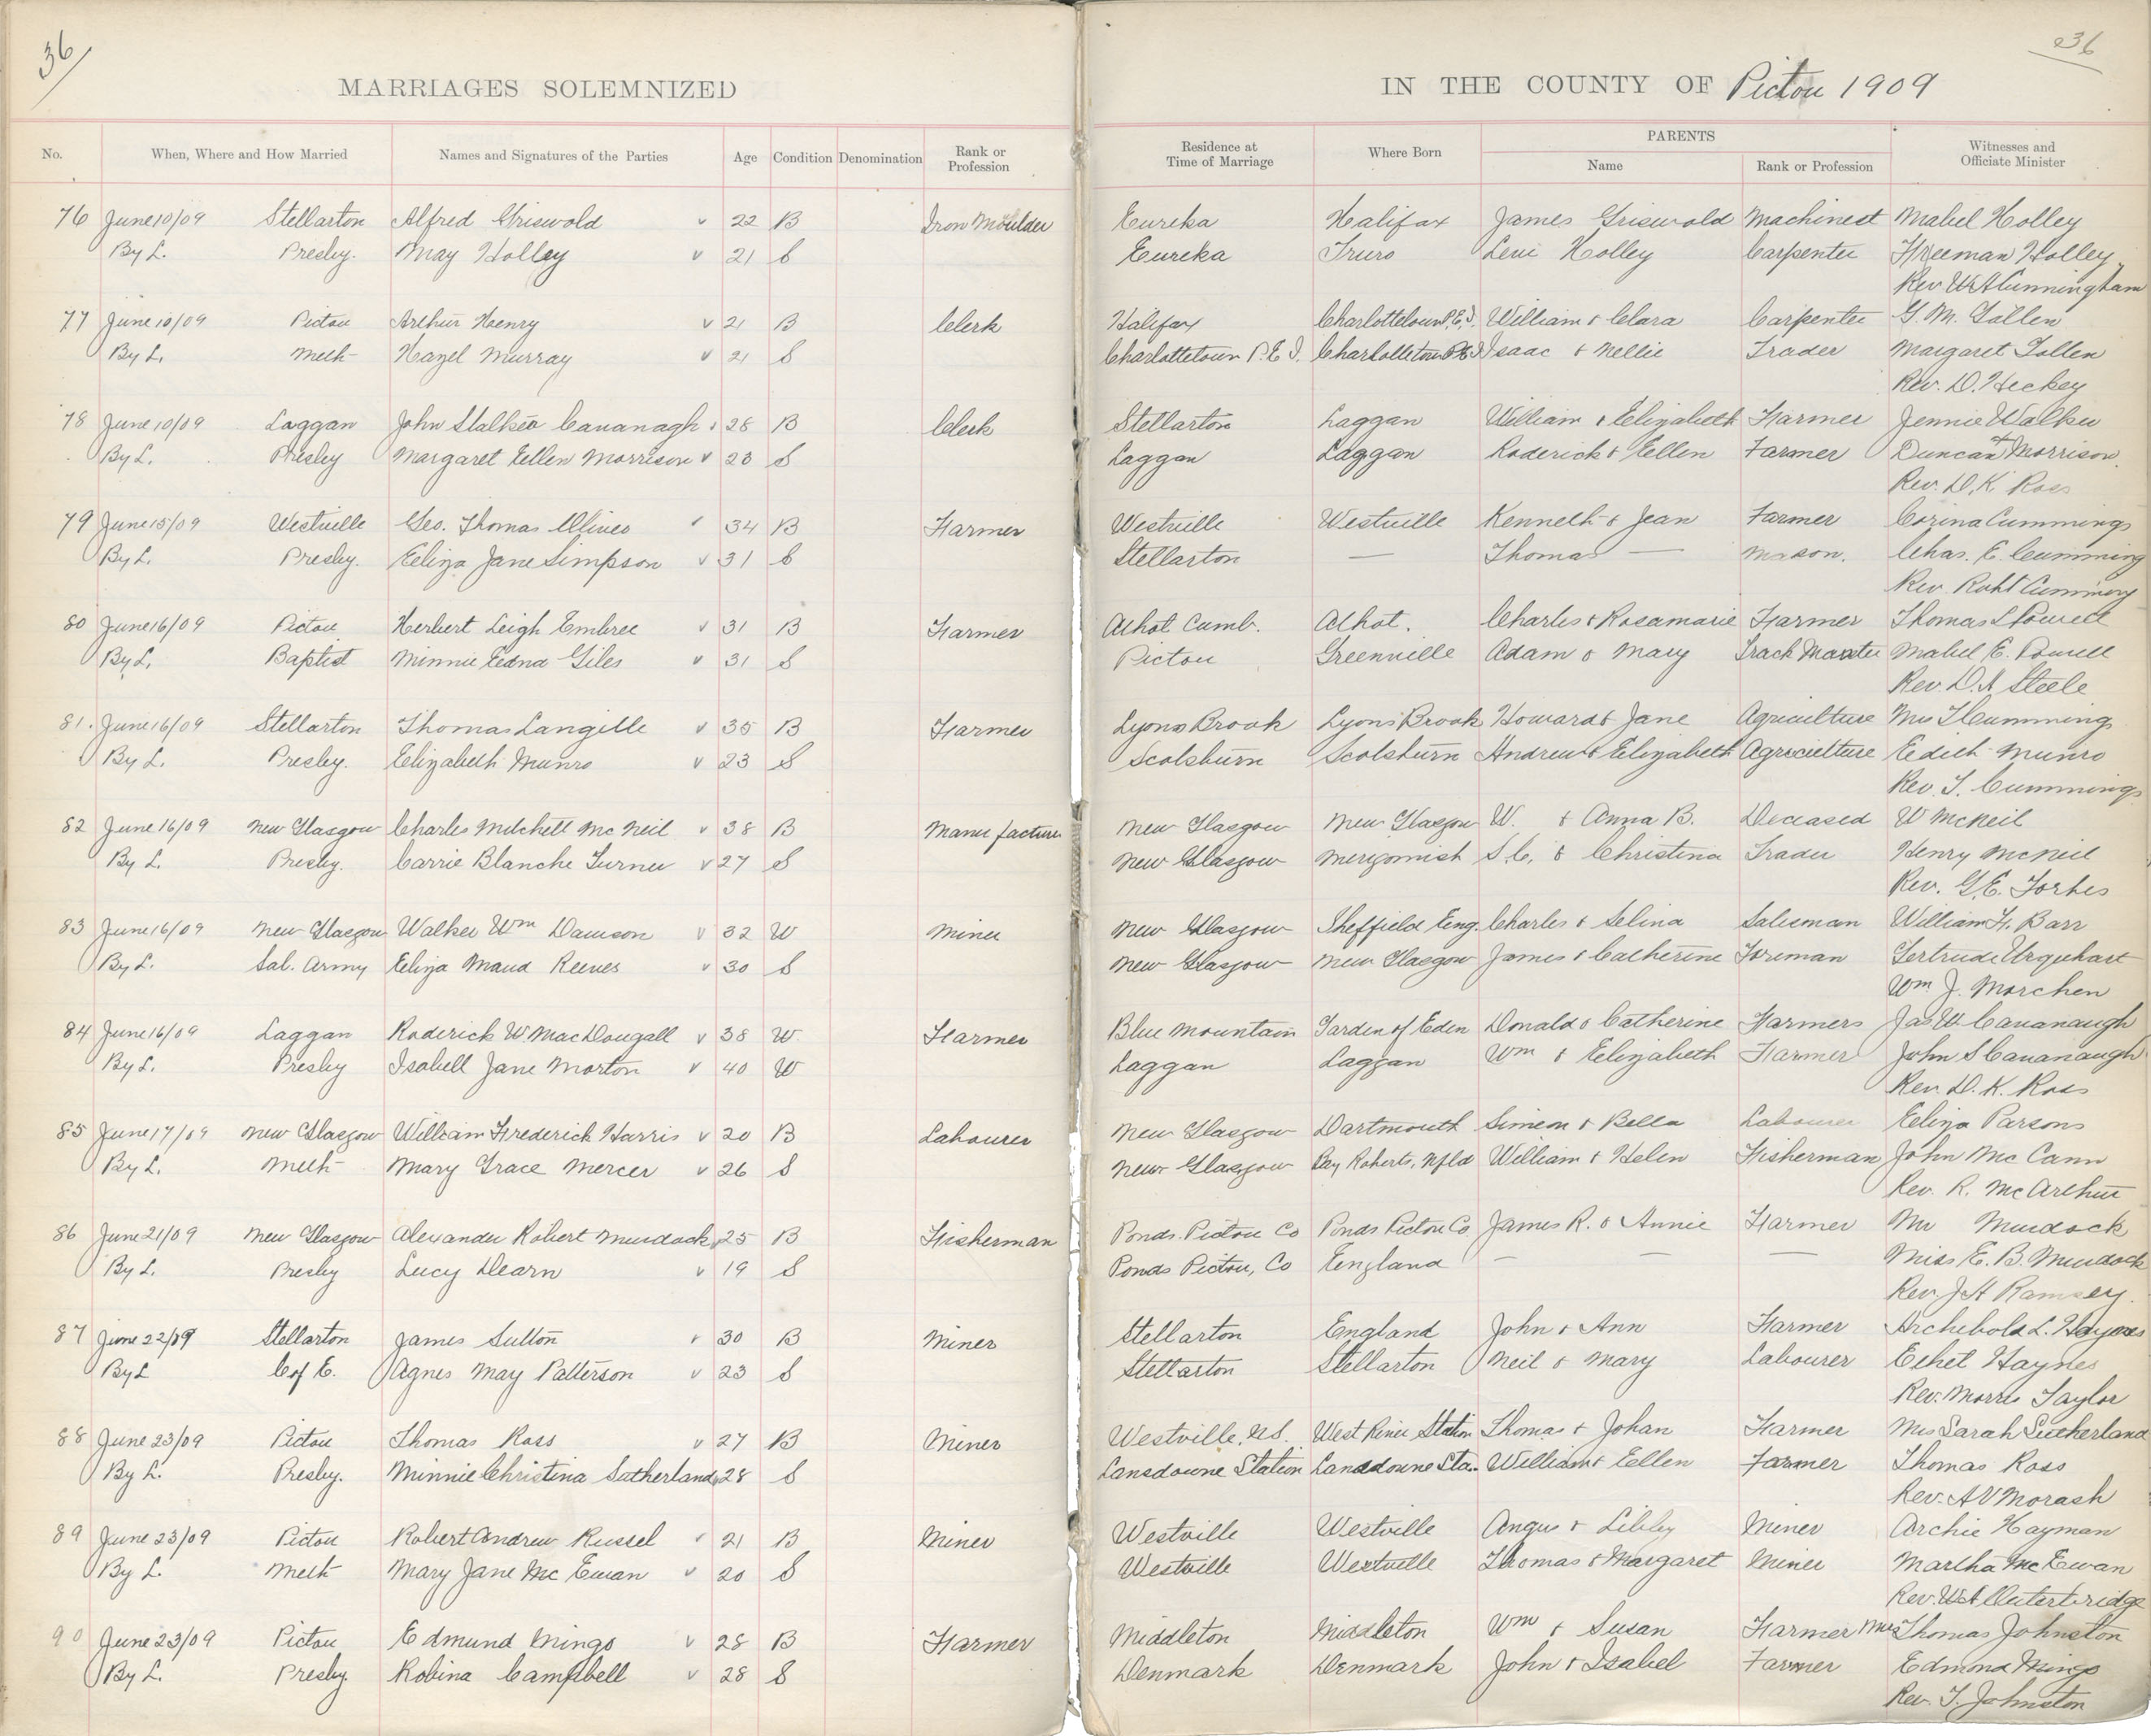 36
36
MARRIAGES SOLEMNIZED IN THE COUNTY OF Pictou 1909
No. When, Where and How Married Names and Signatures of the Parties Age Condition Denomination Rank or Profession Residence at Time of Marriage Where Born PARENTS Name Rank or Profession Witnesses and Officiate Minister
76 June 10/09 Stellarton Alfred Griswold 22 B Iron Moulder Eureka Halifax James Griswold Machinest Mabel Holley
By L. Presby. May Holley 21 S Eureka Truro Levi Holley Carpenter Freeman Holley
Rev W A Cunningham
77 June 10/09 Pictou Arthur Henry 21 B Clerk Halifax Charlottetown P.E.I. William & Clara Carpenter G. M. Tallen
By L. Meth Hazel Murray 21 S Charlottetown P.E.I. Charlottetown P.E.I. Isaac & Nellie Trader Margaret Tallen
Rev. D. Hickey
78 June 10/09 Laggan John Stalker Cavanagh 28 B Clerk Stellarton Laggan William & Elizabeth Farmer Jennie Walker
By L. Presby Margaret Ellen Morrison 23 S Laggan Laggan Roderick & Ellen Farmer Duncan Morrison
Rev. D. K. Ross
79 June 15/09 Westville Geo. Thomas Oliver 34 B Farmer Westville Westville Kenneth & Jean Farmer Corina Cummings
By L. Presby. Eliza Jane Simpson 31 S Stellarton — Thomas — Mason. Chas. E. Cumming
Rev. Robt Cumming
80 June 16/09 Pictou Herbert Leigh Embree 31 B Farmer Athol Cumb. Athol. Charles & Rosamarie Farmer Thomas L Powell
By L. Baptist Minnie Edna Giles 31 S Pictou Greenville Adam & Mary Track Master Mabel E. Powell
Rev. D. A Steele
81. June 16/09 Stellarton Thomas Langille 35 B Farmer Lyons Brook Lyons Brook Howard & Jane Agriculture Mrs T Cummings
By L. Presby. Elizabeth Munro 23 S Scotsburn Scotsburn Andrew & Elizabeth Agriculture Edith Munro
Rev. T. Cummings
82 June 16/09 New Glasgow Charles Mitchell McNeil 38 B Manufacturer New Glasgow New Glasgow W. & Anna B. Deceased W McNeil
By L. Presby. Carrie Blanche Turner 27 S New Glasgow Merigomish S. C. & Christina Trader Henry McNeil
Rev. G. E. Forbes
83 June 16/09 New Glasgow Walker Wm Dawson 32 W Miner New Glasgow Sheffield Eng. Charles & Selina Salesman William H. Barr
By L. Sal. Army Eliza Maud Reeves 30 S New Glasgow New Glasgow James & Catherine Foreman Gertrude Urquhart
Wm J. Marchen
84 June 16/09 Laggan Roderick W. MacDougall 38 W. Farmer Blue Mountain Garden of Eden Donald & Catherine Farmers Jas W Cavanaugh
By L. Presby Isabell Jane Morton 40 W Laggan Laggan Wm & Elizabeth Farmer John S Cavanaugh
Rev D. K. Ross
85 June 17/09 New Glasgow William Frederick Harris 20 B Labourer New Glasgow Dartmouth Simeon & Bella Labourer Eliza Parsons
By L. Meth Mary Grace Mercer 26 S New Glasgow Bay Roberts, Nfld William & Helen Fisherman John McCann
Rev. R. McArthur
86 June 21/09 New Glasgow Alexander Robert Murdock 25 B Fisherman Ponds. Pictou Co Ponds Pictou Co James R. & Annie Farmer Mr Murdock
By L. Presby Lucy Dearn 19 S Ponds Pictou, Co England — — — Miss E. B. Murdock
Rev. J H Ramsey
87 June 22/09 Stellarton James Sutton 30 B Miner Stellarton England John & Ann Farmer Archibold L. Haynes
By L C of E. Agnes May Patterson 23 S Stellarton Stellarton Neil & Mary Labourer Ethel Haynes
Rev. Morris Taylor
88 June 23/09 Pictou Thomas Ross 27 B Miner Westville, N.S. West River Station Thomas & Johan Farmer Mrs Sarah Sutherland
By L. Presby. Minnie Christina Sutherland 28 S Lansdowne Station Lansdowne Sta. William & Ellen Farmer Thomas Ross
Rev. A V Morash
89 June 23/09 Pictou Robert Andrew Russel 21 B Miner Westville Westville Angus & Libby Miner Archie Hayman
By L. Meth Mary Jane McEwan 20 S Westville Westville Thomas & Margaret Miner Martha McEwan
Rev. W A Outerbridge
90 June 23/09 Pictou Edmund Mingo 28 B Farmer Middleton Middleton Wm & Susan Farmer Mrs Thomas Johnston
By L. Presby. Robina Campbell 28 S Denmark Denmark John & Isabel Farmer Edmond Mingo
Rev. T. Johnston